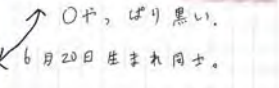 ○や、ぱり黒い.
6月20日生まれ同士。